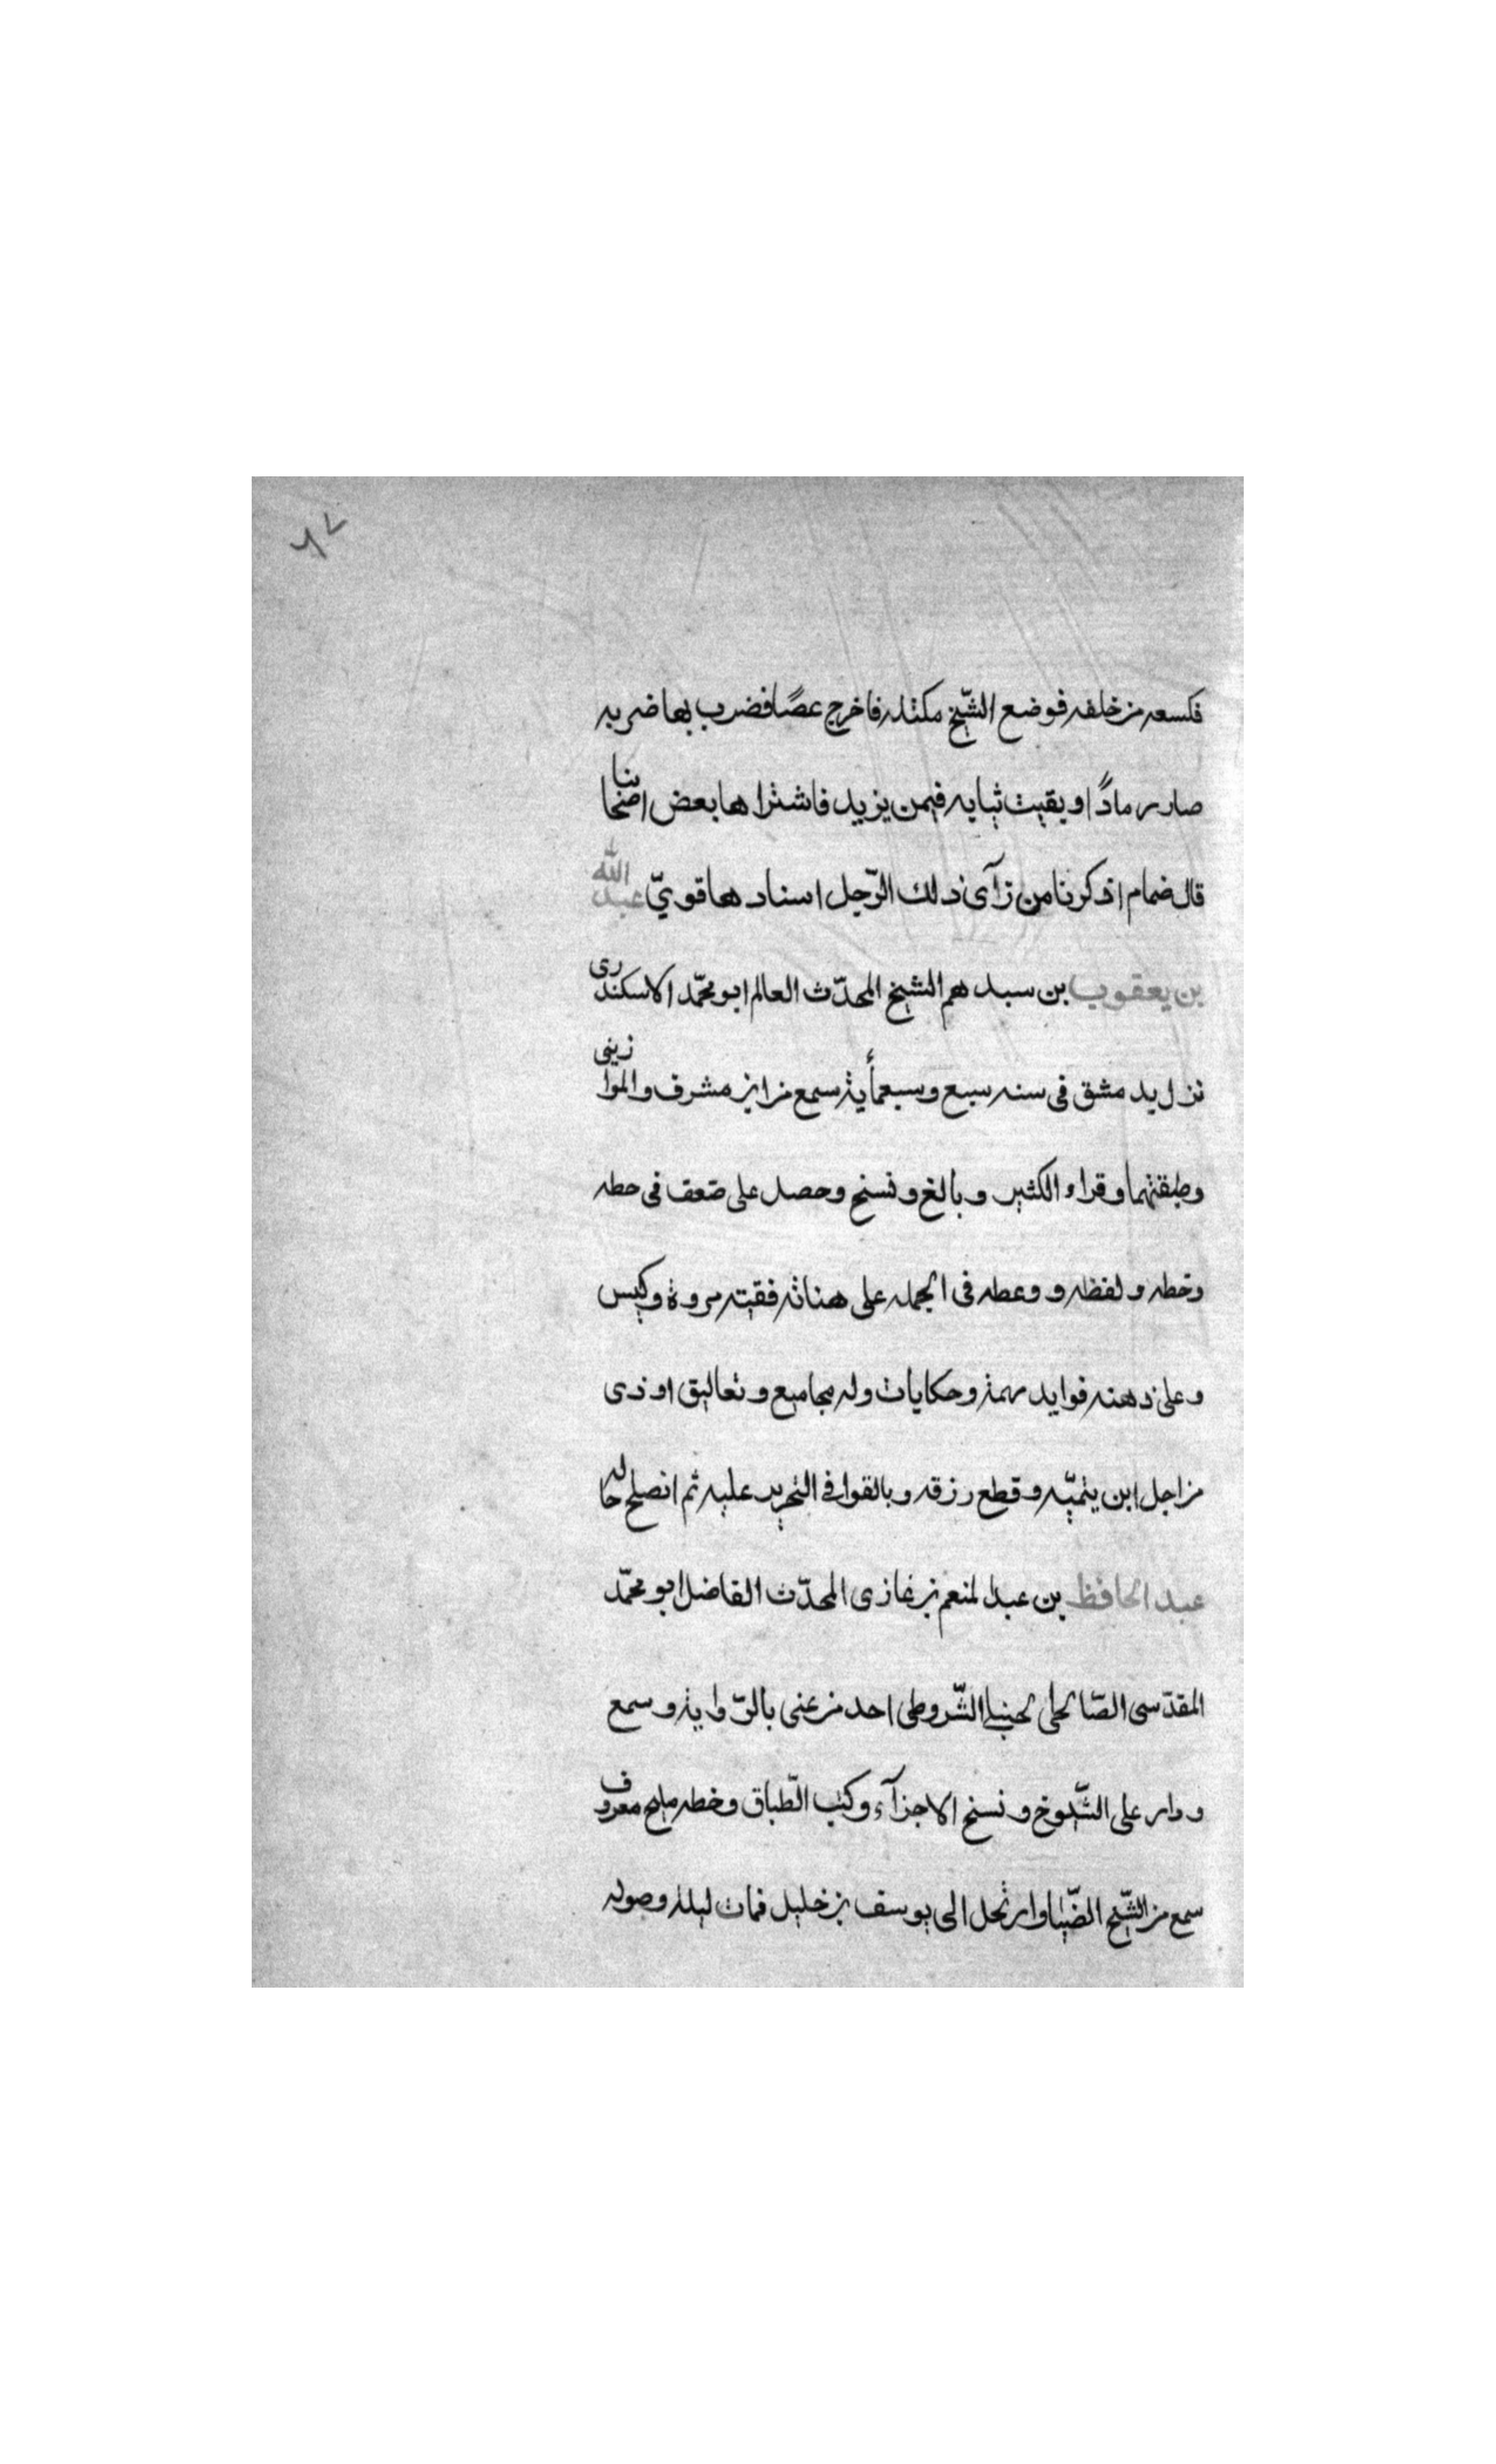 ٦٧
فكسعه من خلفه فوضع الشيخ مكتله فاخرج عصًا فضرب بها ضربه
صار رمادًا وبقيت ثيابه فيمن يزيد فاشتراها بعض اصحابنا
قال ضمام اذكرنا من رآى ذلك الرّجل اسنادها قويّ عبد الله
بن يعقوب بن سيدهم الشيخ المحدّث العالم ابو محمّد الاسكندرى
نزل بدمشق فى سنه سبع وسبعمأية سمع من ابن مشرف والموازينى
وطبقتهما وقراء الكثير وبالغ ونسخ وحصل على ضعف فى حطه
وخطه ولفظه ووعطه فى الجمله على هناته فقيه مروة وكيس
وعلى ذهنه فوايد مهمة وحكايات وله مجاميع وتعاليق اوذى
من اجل ابن يتميّه وقطع رزقه وبالقوا فى التحريد عليه ثم انصلح حاله
عبد الحافظ بن عبد المنعم بن غازى المحدّث الفاضل ابو محمّد
المقدّسى الصّالحلى لحنبلى الشّروطى احد من عنى بالرّواية وسمع
ودار على الشّيوخ ونسخ الاجزآء وكتب الطّباق وخطه مليح معروف
سمع من الشّيخ الضّيا وارتحل الى يوسف بن خليل فمات ليلة وصوله